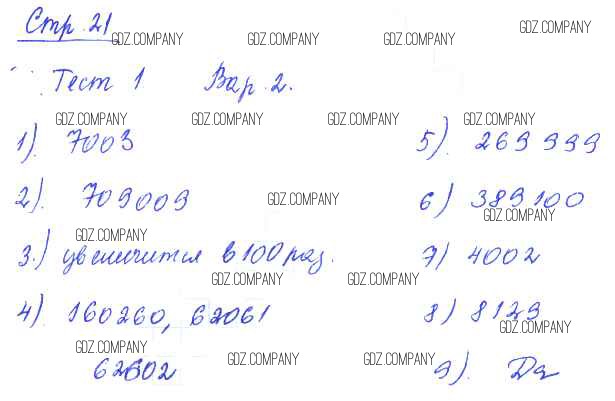 Стр. 21
Тест 1 Вар. 2.
1). 7003
2). 709009
3.) увеличится в 100 раз.
4). 160260, 62061
62602
5). 269 999
6) 389100
7) 4002
8) 8129
9). Да
GDZ.COMPANY GDZ.COMPANY GDZ.COMPANY GDZ.COMPANY
GDZ.COMPANY GDZ.COMPANY GDZ.COMPANY GDZ.COMPANY
GDZ.COMPANY GDZ.COMPANY
GDZ.COMPANY
GDZ.COMPANY GDZ.COMPANY
GDZ.COMPANY
GDZ.COMPANY GDZ.COMPANY GDZ.COMPANY